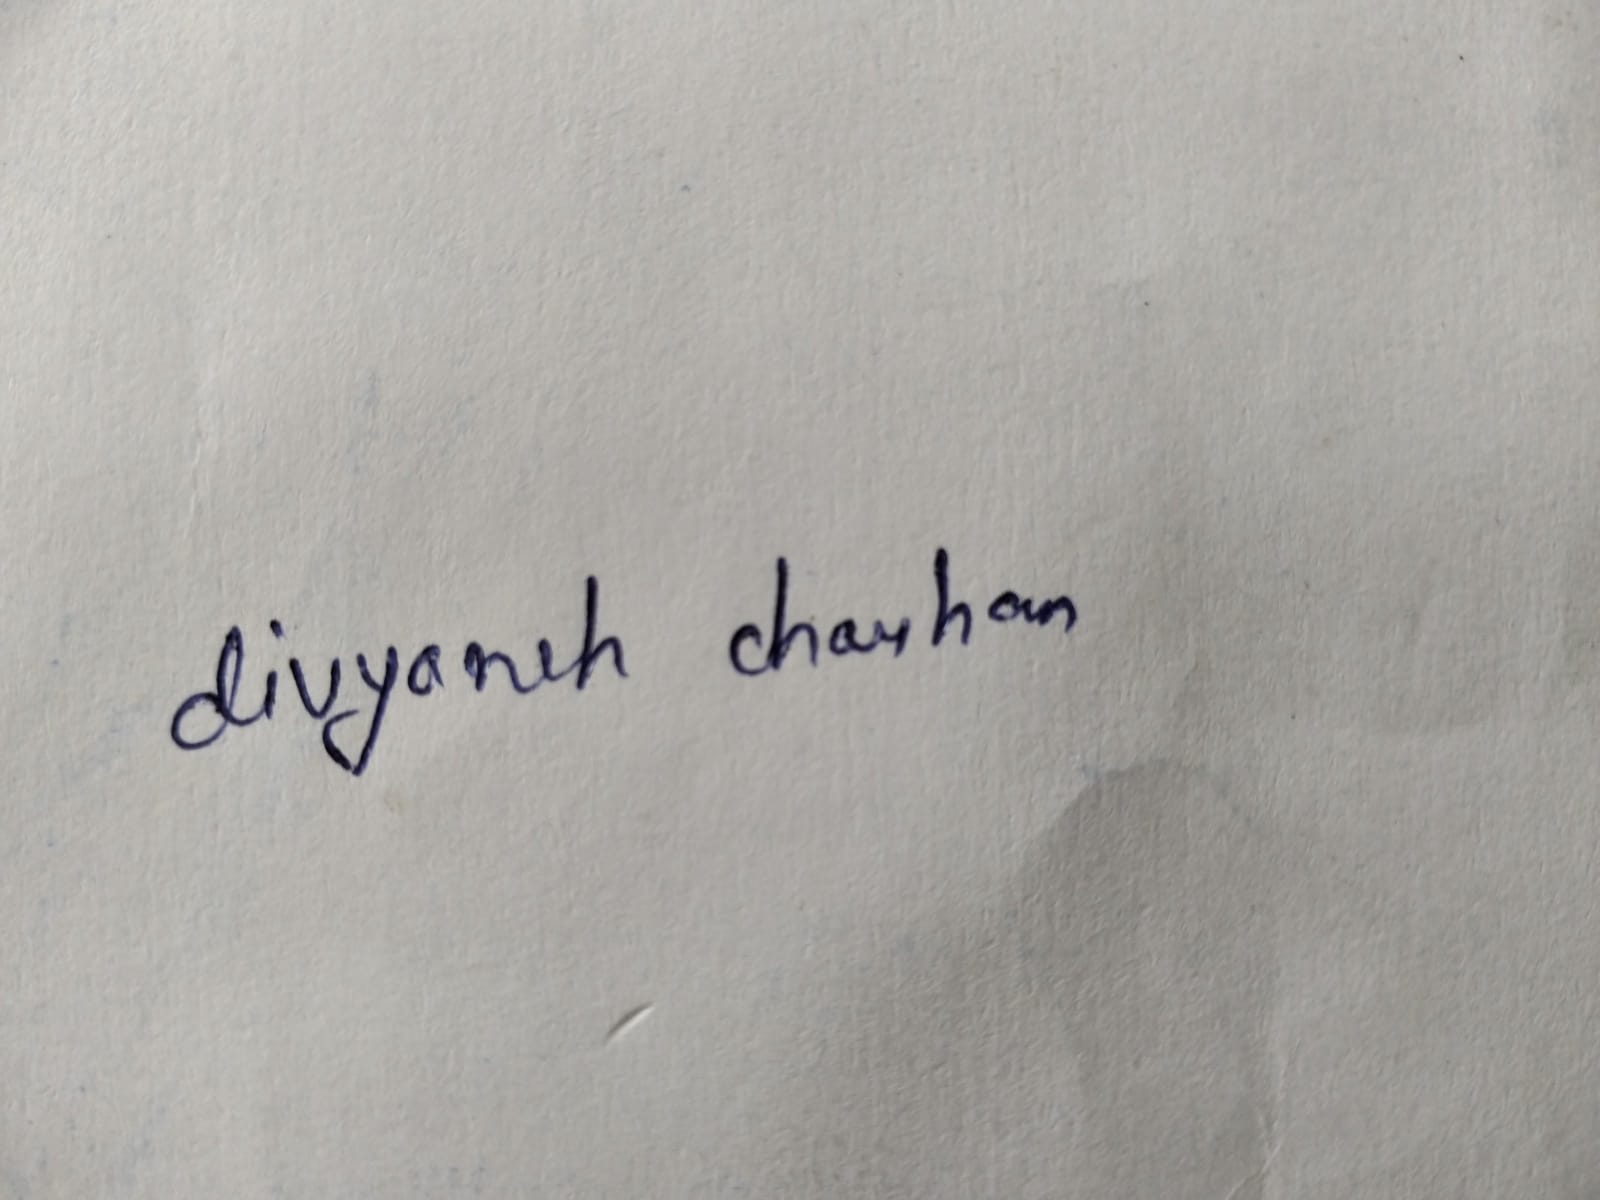 divyansh chauhan